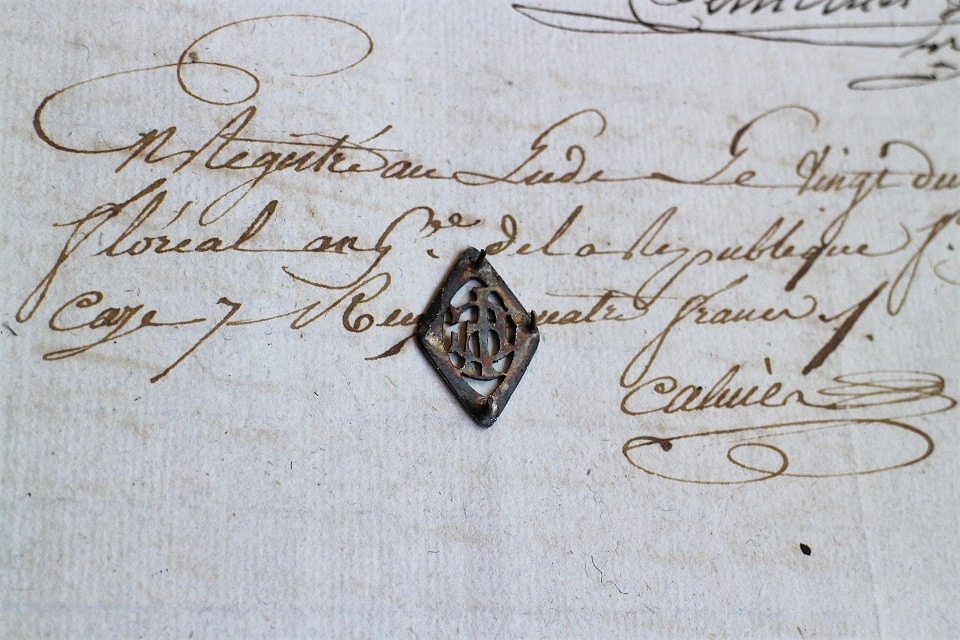 Enregistré au Lude Le Vingt du
floréal an 6.re de la Republique f.o
Caze 7 Reç uatre francs
Cahuèr